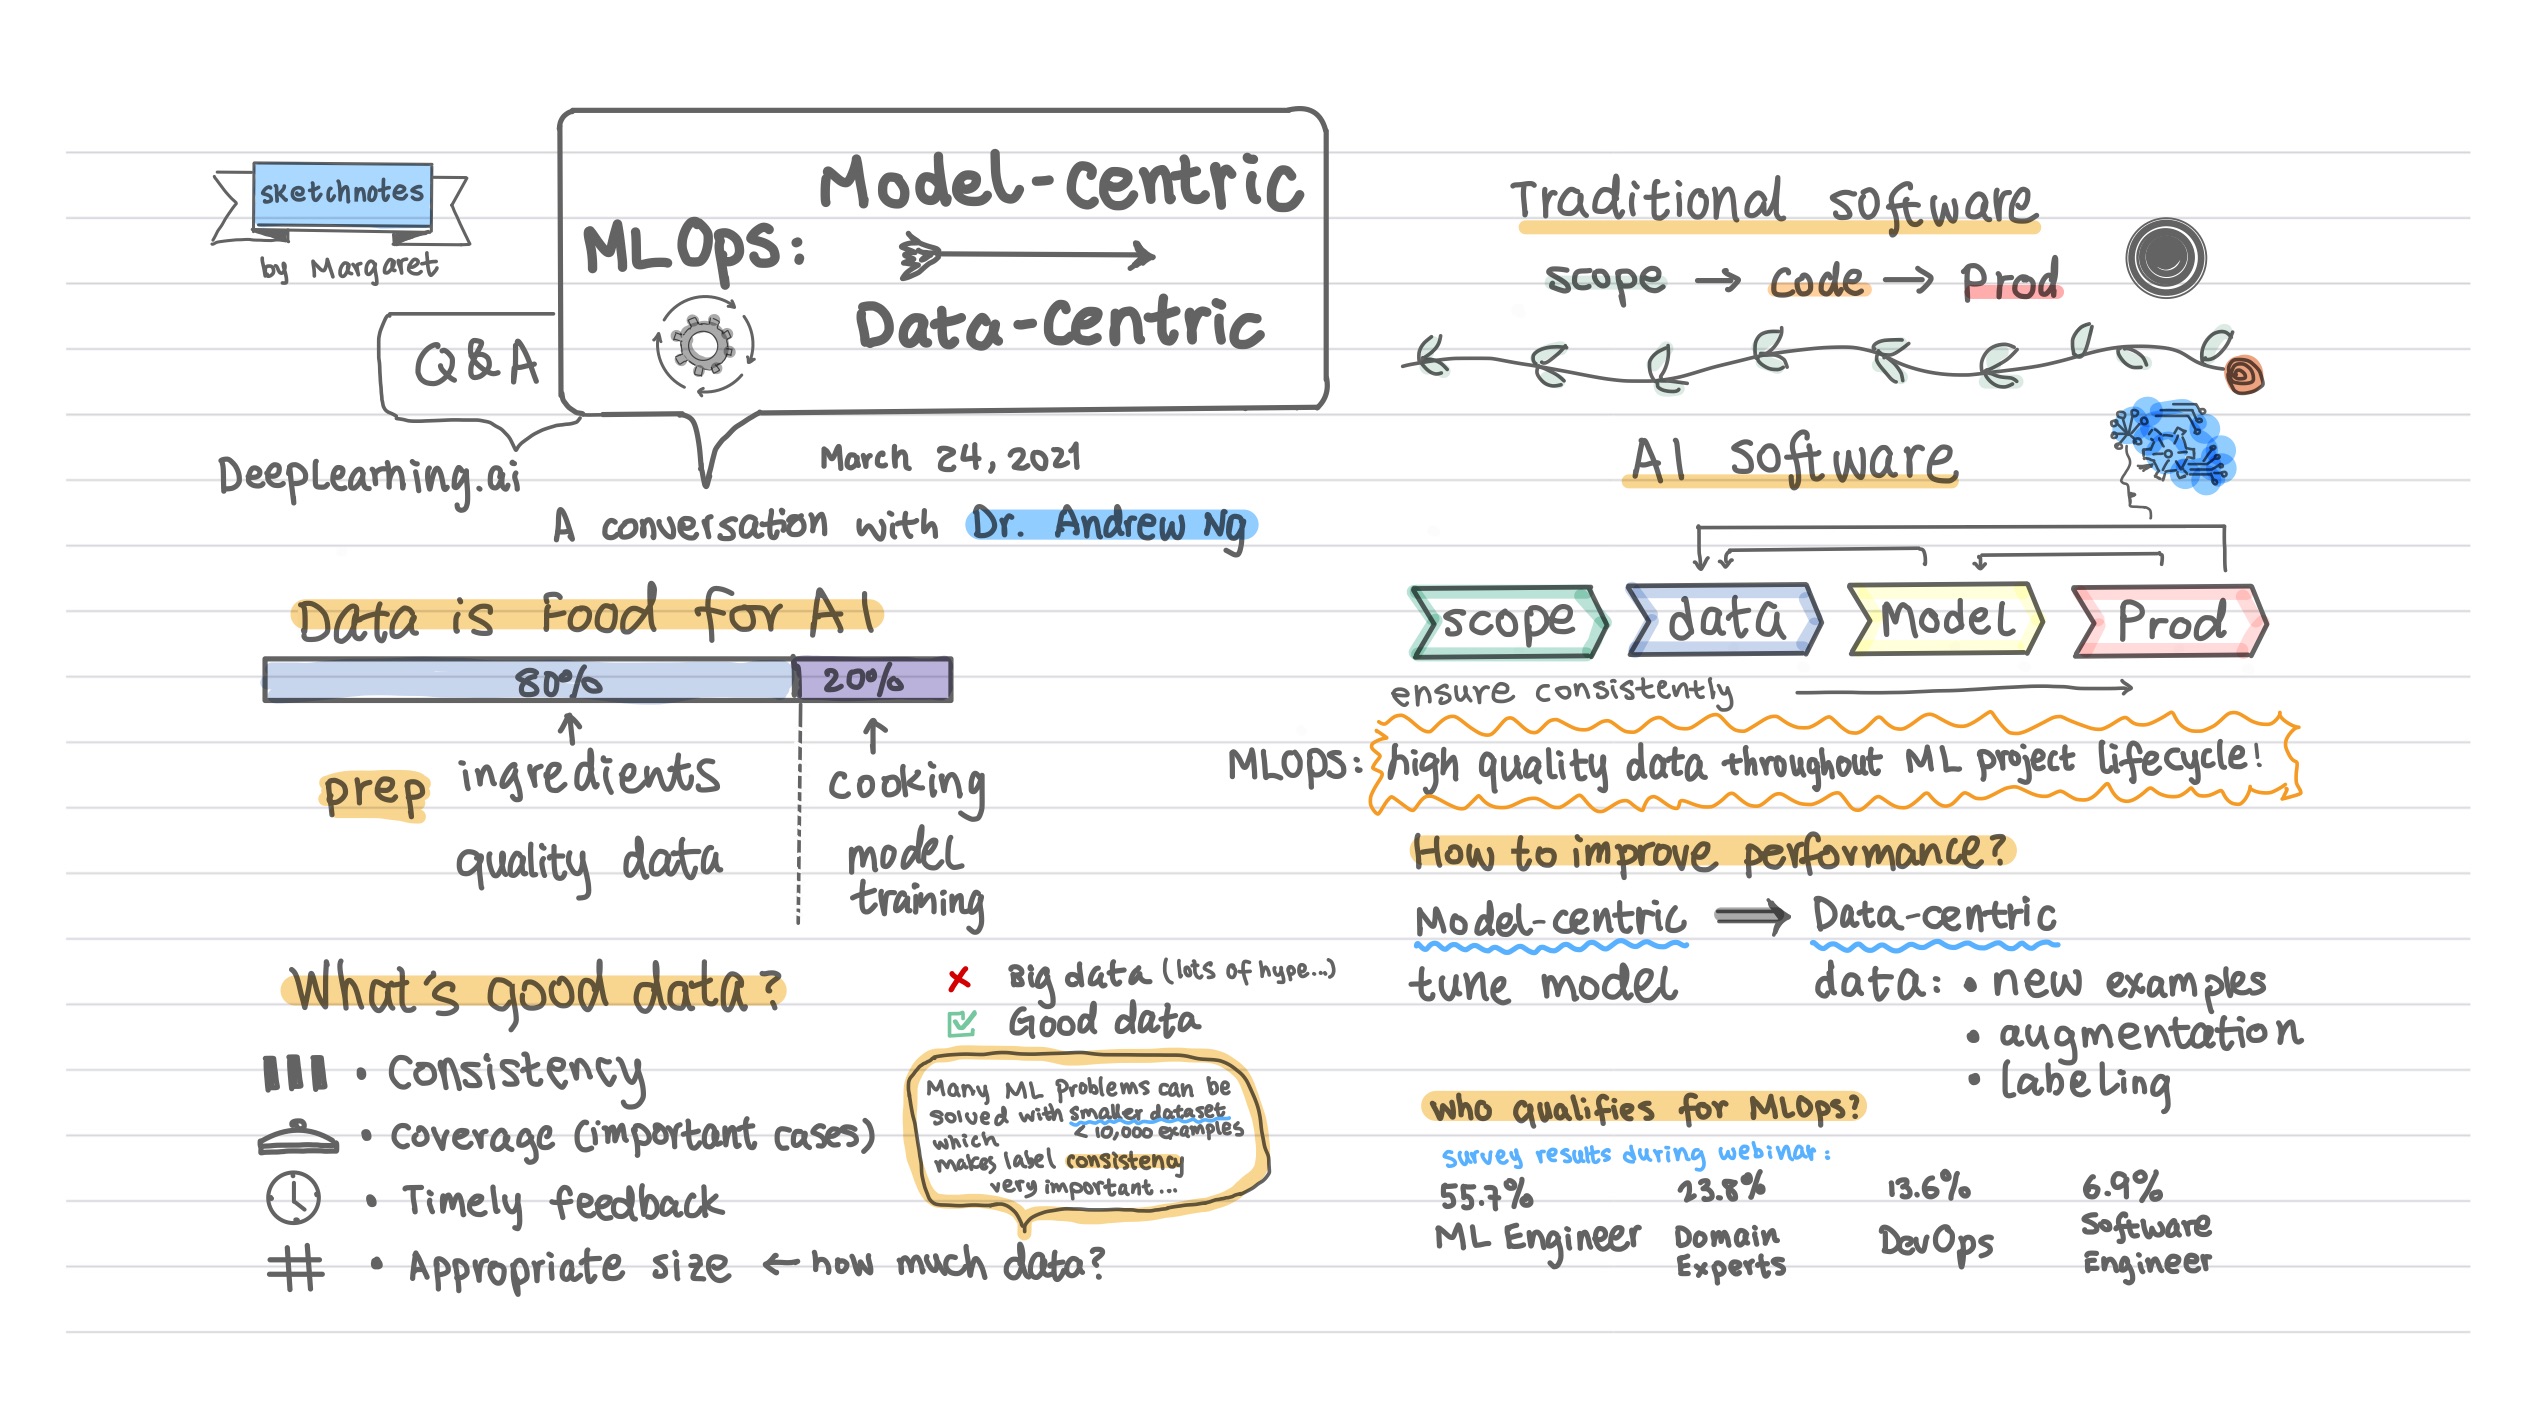 sketchnotes
by Margaret
Q&A
MLOps:
Model-centric
Data-centric
DeepLearning.ai
March 24, 2021
A conversation with Dr. Andrew Ng
Data is Food for AI
80%
20%
prep
ingredients
quality data
cooking
model
training
What's good data?
Big data (lots of hype...)
Good data
• Consistency
• Coverage (important cases)
• Timely feedback
• Appropriate size ← how much data?
Many ML Problems can be
solved with smaller dataset
< 10,000 examples
which
makes label consistency
very important...
Traditional software
scope → code → Prod
AI software
scope
data
Model
Prod
ensure consistently
MLOPS: high quality data throughout ML project lifecycle!
How to improve performance?
Model-centric ⇒ Data-centric
tune model
data: • new examples
• augmentation
• labeling
who qualifies for MLOps?
survey results during webinar:
55.7%
ML Engineer
23.8%
Domain
Experts
13.6%
DevOps
6.9%
Software
Engineer